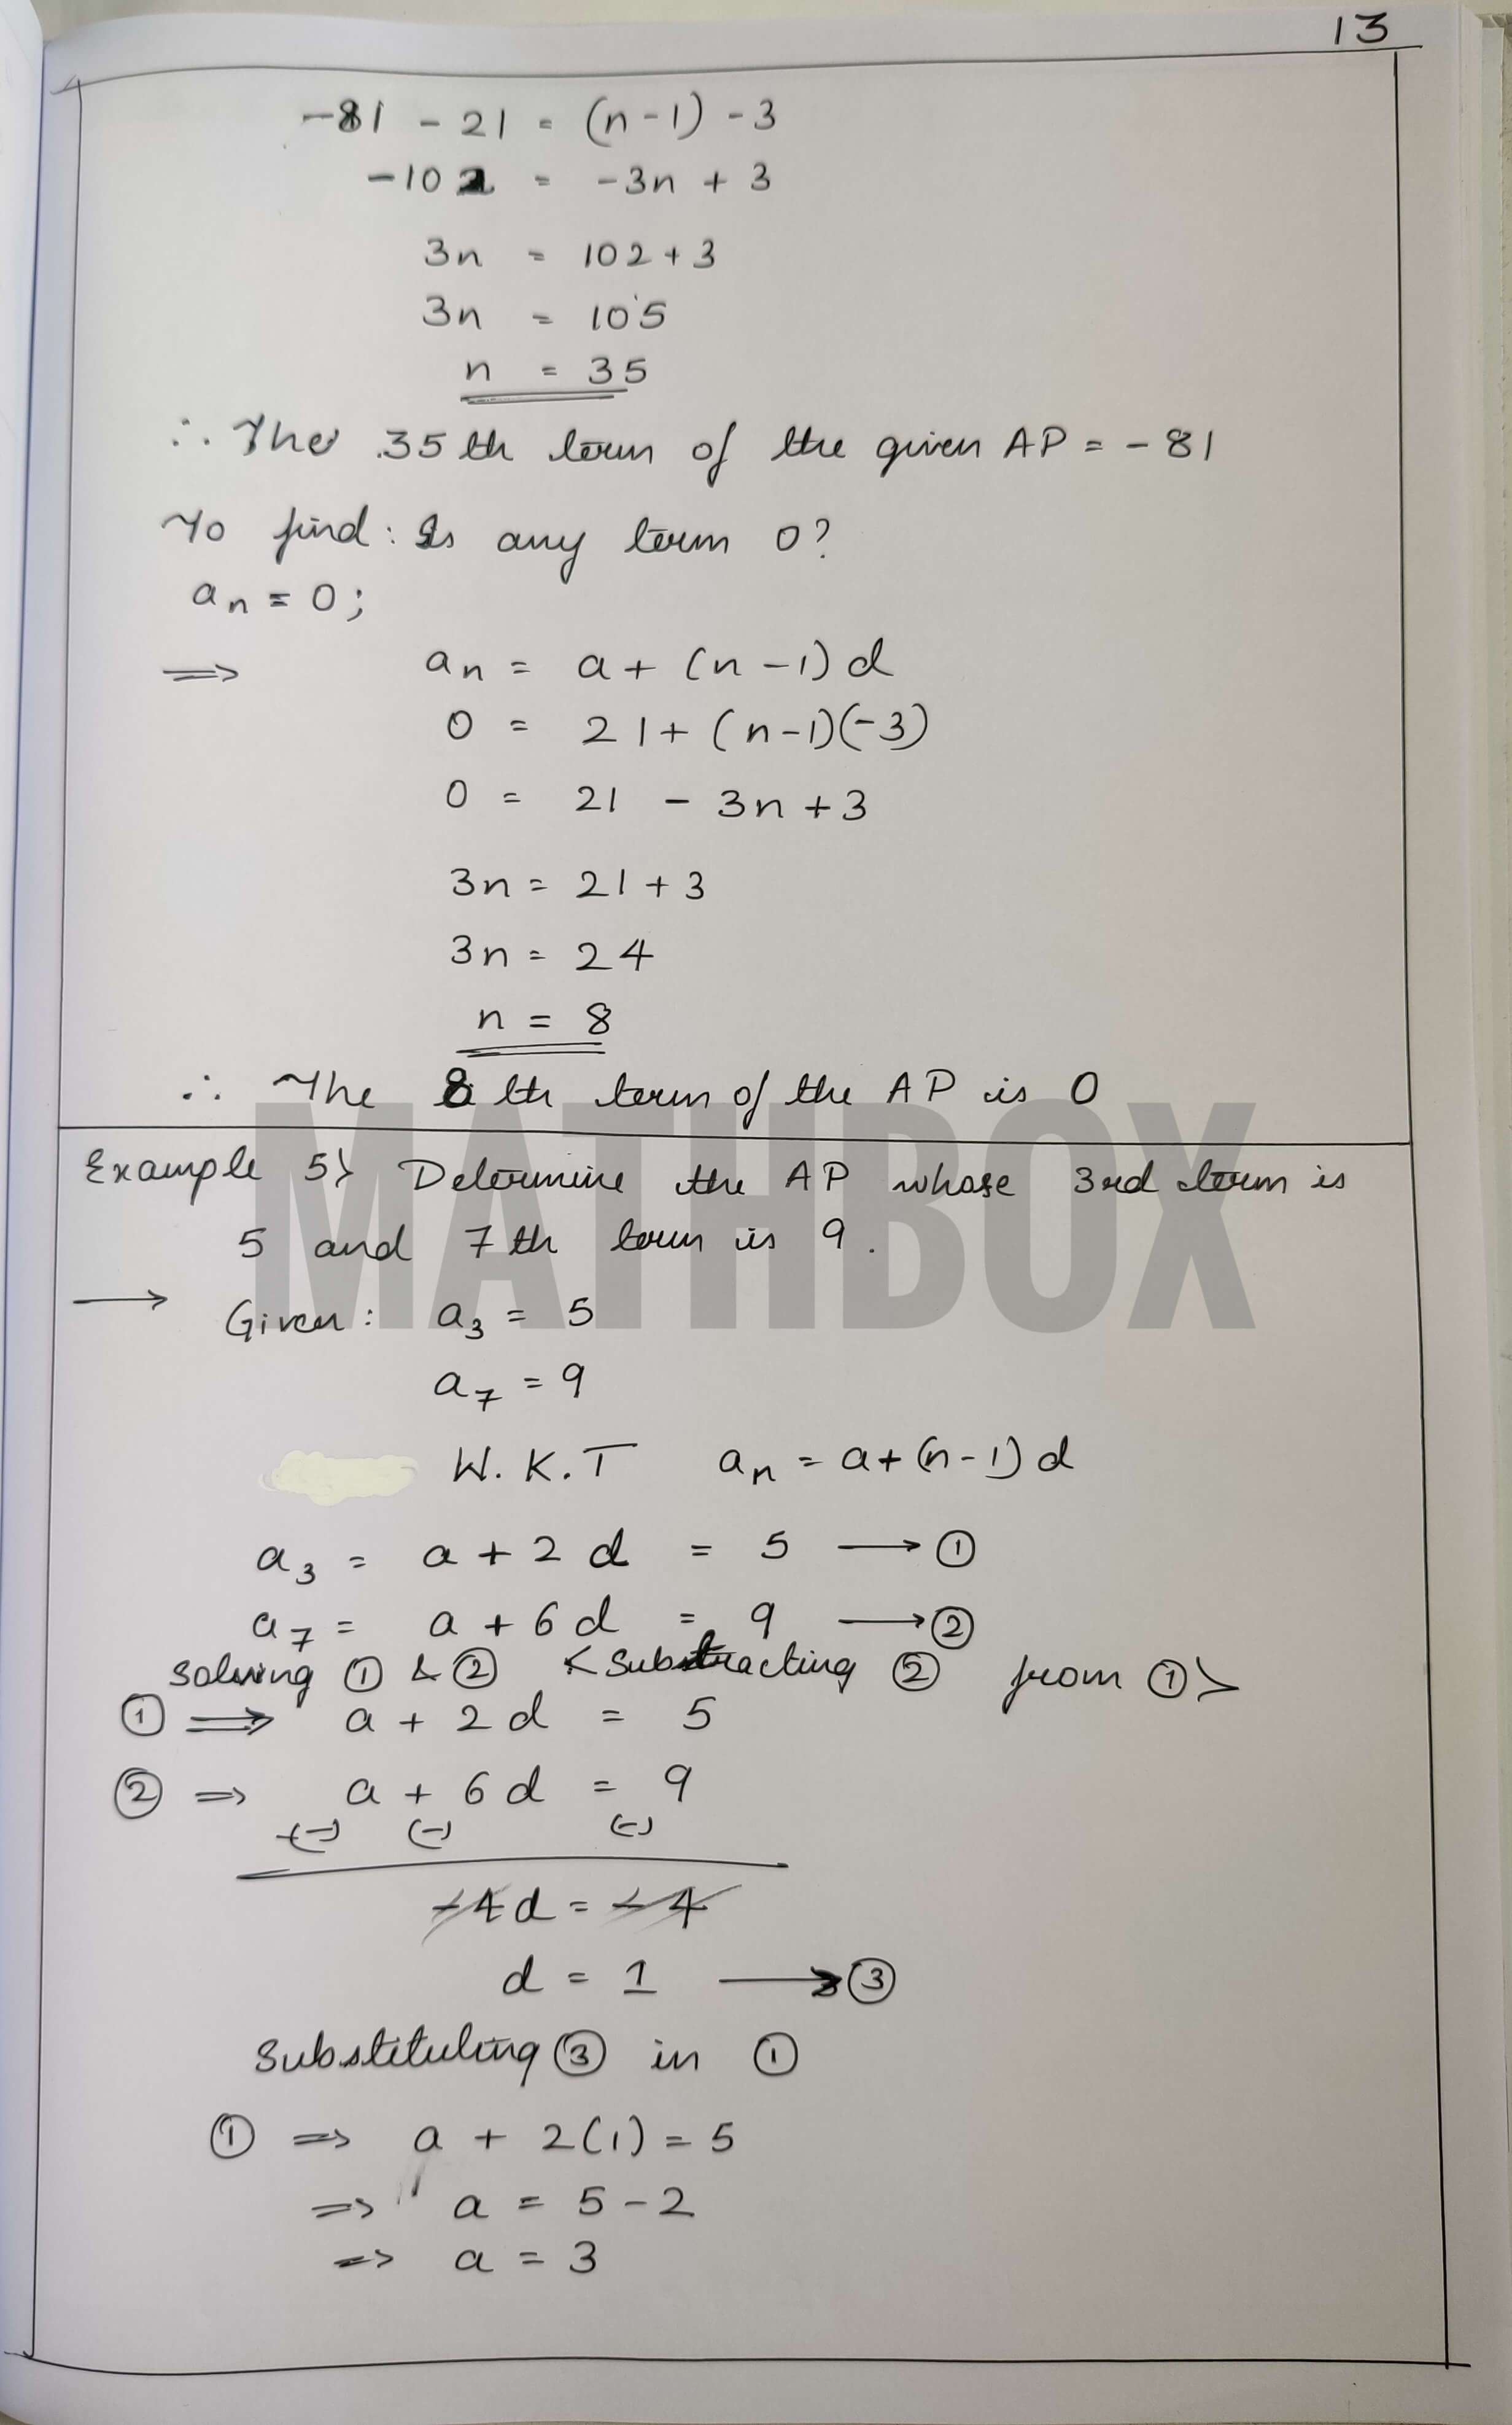 13
-81 - 21 = (n-1) -3
-102 = -3n + 3
3n = 102 + 3
3n = 105
n = 35
∴ The 35th term of the given AP = -81
To find: Is any term 0?
aₙ = 0;
⇒ aₙ = a + (n-1)d
0 = 21 + (n-1)(-3)
0 = 21 - 3n + 3
3n = 21 + 3
3n = 24
n = 8
∴ The 8th term of the AP is 0
MATHBOX
Example 5> Determine the AP whose 3rd term is
5 and 7th term is 9.
→ Given: a₃ = 5
a₇ = 9
W.K.T aₙ = a + (n-1)d
a₃ = a + 2d = 5 → ①
a₇ = a + 6d = 9 → ②
Solving ① & ② <Substracting ② from ①>
① ⇒ a + 2d = 5
② ⇒ a + 6d = 9
(-) (-) (-)
-4d = -4
d = 1 → ③
Substituting ③ in ①
① ⇒ a + 2(1) = 5
⇒ a = 5 - 2
⇒ a = 3